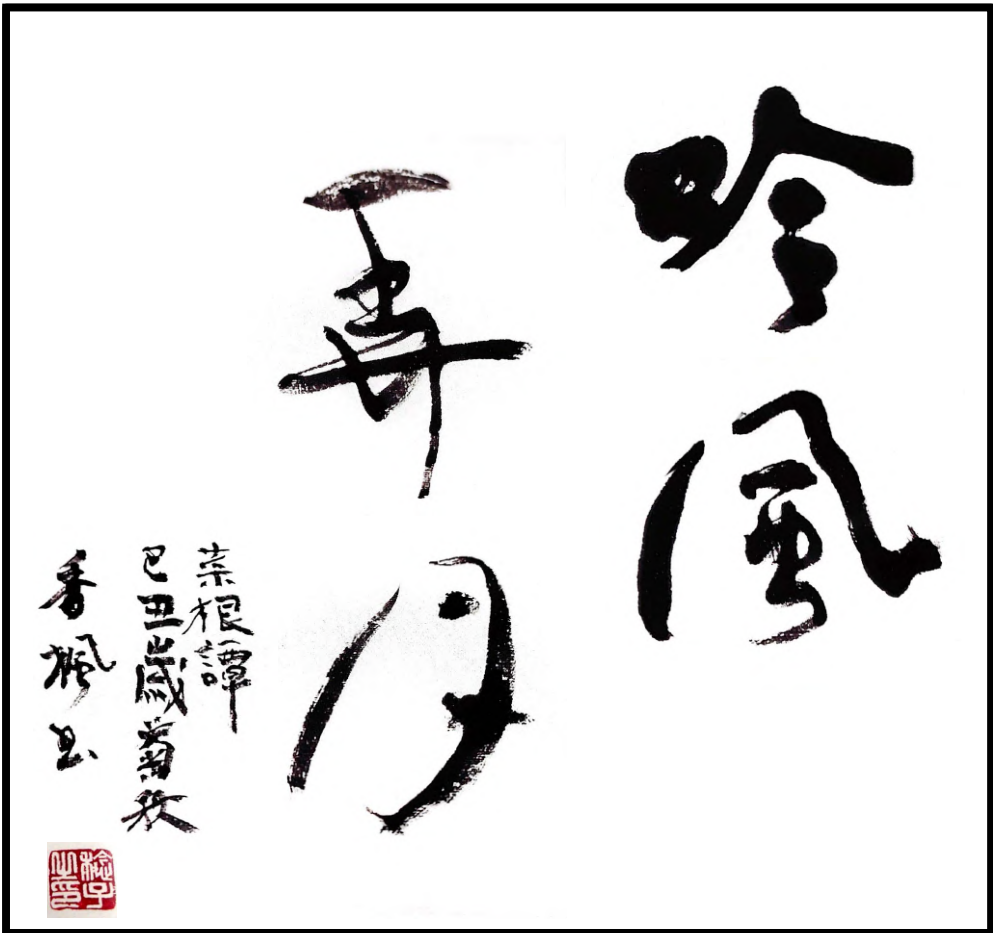 吟風
弄月
菜根譚
己丑歳菊秋
香楓書